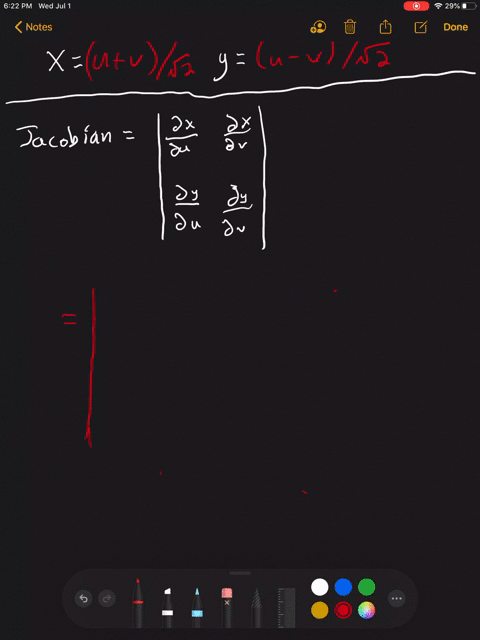 6:22 PM Wed Jul 1 29%
Notes Done
x = (u+v)/√2 y = (u-v)/√2
Jacobian = | ∂x/∂u ∂x/∂v |
| ∂y/∂u ∂y/∂v |
= |